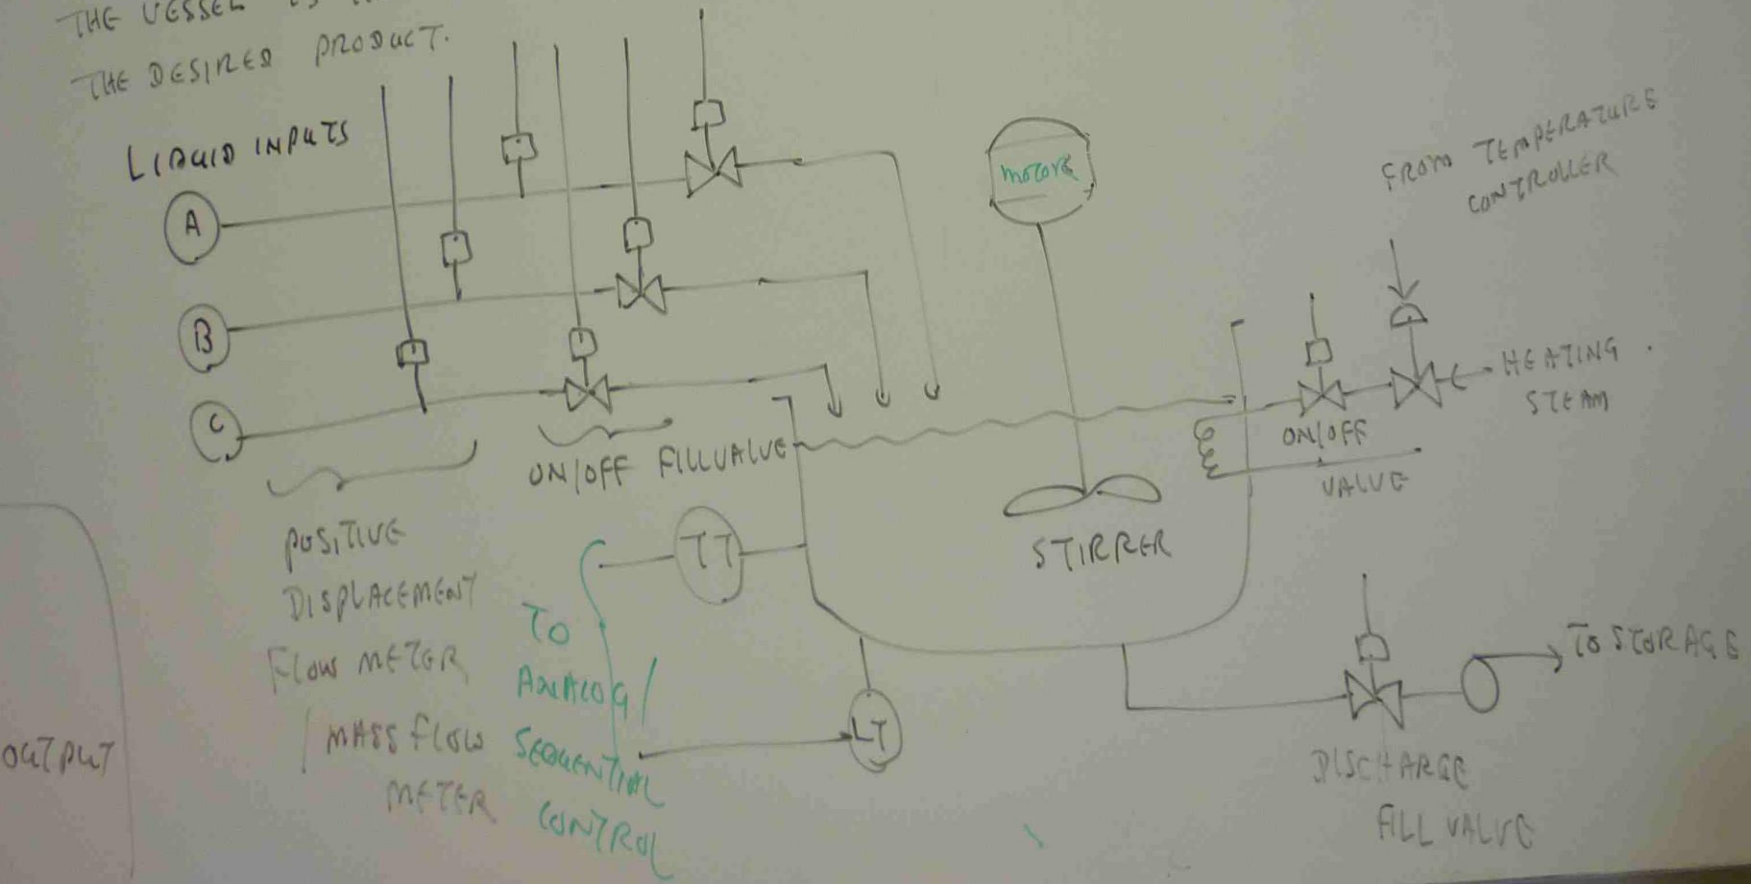 THE VESSEL IS
THE DESIRED PRODUCT.
LIQUID INPUTS
A
B
C
MOTOR
FROM TEMPERATURE
CONTROLLER
HEATING
STEAM
ON/OFF
VALVE
ON/OFF FILL VALVE
POSITIVE
DISPLACEMENT
FLOW METER
/ MASS FLOW
METER
TT
TO
ANALOG/
SEQUENTIAL
CONTROL
LT
STIRRER
TO STORAGE
DISCHARGE
FILL VALVE
OUTPUT